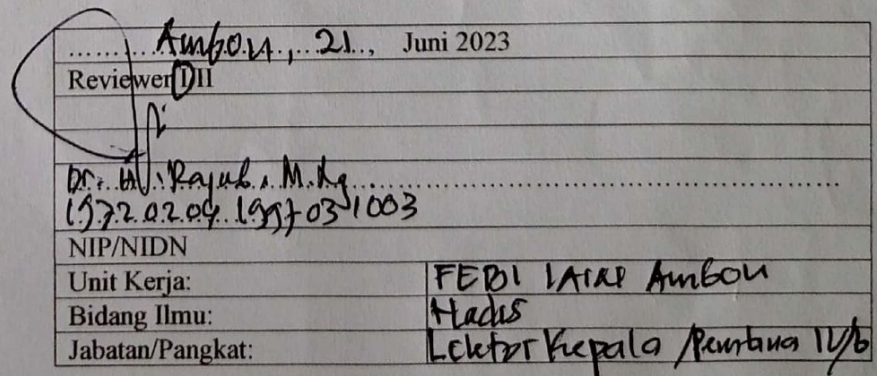 ........Ambon, 21, Juni 2023
Reviewer I II
Dr. H. Rajab, M.Ag
19720204 199703 1003
NIP/NIDN
Unit Kerja: FEBI IAIN Ambon
Bidang Ilmu: Hadis
Jabatan/Pangkat: Lektor Kepala /Pembina IV/b